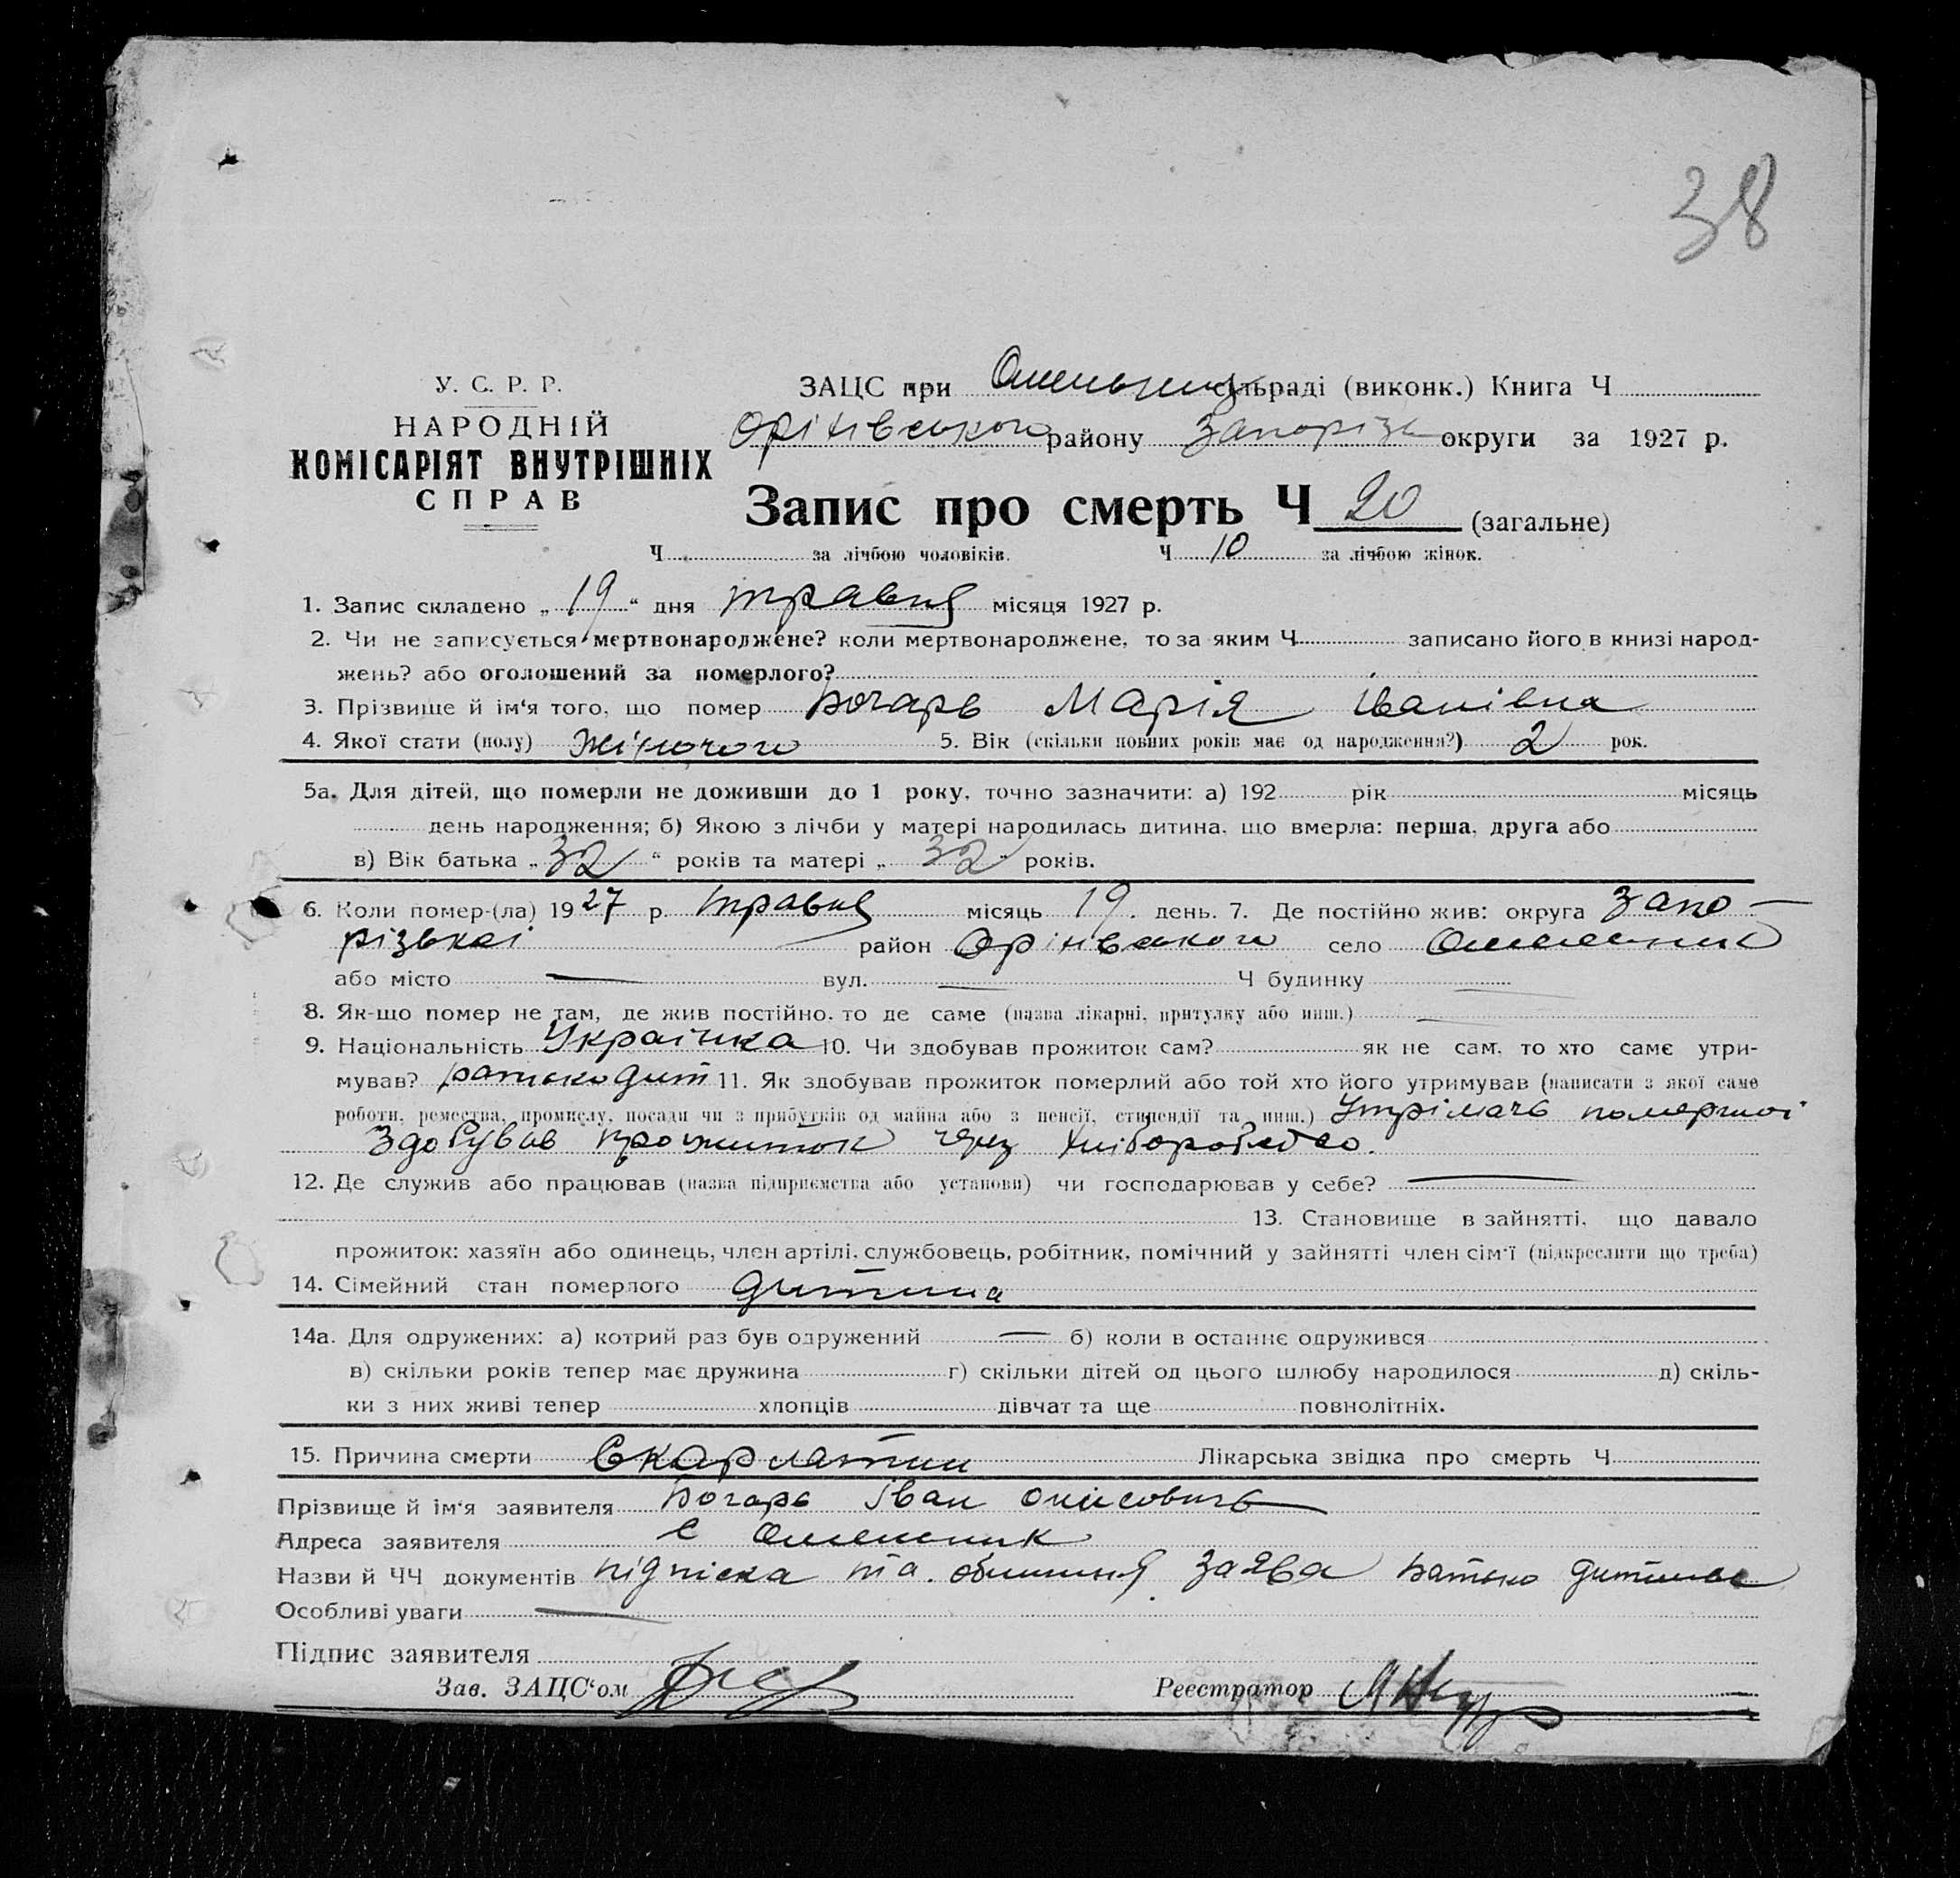 38
У. С. Р. Р.
НАРОДНІЙ
КОМІСАРІЯТ ВНУТРІШНІХ
СПРАВ
ЗАЦС при сільраді (виконк.) Книга Ч
Орінівського району Запоріз округи за 1927 р.
Запис про смерть Ч 20 (загальне)
Ч за лічбою чоловіків. Ч 10 за лічбою жінок.
1. Запис складено „19“ дня травня місяця 1927 р.
2. Чи не записується мертвонароджене? коли мертвонароджене, то за яким Ч записано його в книзі народ-
жень? або оголошений за померлого?
3. Прізвище й ім‘я того, що помер Марія Іванівна
4. Якої стати (полу) Жіночого 5. Вік (скільки повних років має од народження?) 2 рок.
5а. Для дітей, що померли не доживши до 1 року, точно зазначити: а) 192 рік місяць
день народження; б) Якою з лічби у матері народилась дитина, що вмерла: перша, друга або
в) Вік батька „32“ років та матері „32“ років.
6. Коли помер-(ла) 1927 р. травня місяць 19. день. 7. Де постійно жив: округа Запо-
різькоі район Орінівського село Омельник
або місто — вул. — Ч будинку —
8. Як-що помер не там, де жив постійно, то де саме (назва лікарні, притулку або инш.) —
9. Національність Украінка 10. Чи здобував прожиток сам? як не сам, то хто саме утри-
мував? 11. Як здобував прожиток померлий або той хто його утримував (написати з якої саме
роботи, ремества, промислу, посади чи з прибутків од майна або з пенсії, стипендії та инш.) Утрімачь помершоі
Здобував прожиток через хліборобство.
12. Де служив або працював (назва підприємства або установи) чи господарював у себе? —
13. Становище в зайнятті, що давало
прожиток: хазяїн або одинець, член артілі, службовець, робітник, помічний у зайнятті член сім‘ї (підкреслити що треба)
14. Сімейний стан померлого дитина
14а. Для одружених: а) котрий раз був одружений — б) коли в останнє одружився
в) скільки років тепер має дружина г) скільки дітей од цього шлюбу народилося д) скіль-
ки з них живі тепер хлопців дівчат та ще повнолітніх.
15. Причина смерти Скарлатин Лікарська звідка про смерть Ч
Прізвище й ім‘я заявителя Іван
Адреса заявителя с Омельник
Назви й ЧЧ документів підпіска та заява батько дитини
Особливі уваги —
Підпис заявителя
Зав. ЗАЦС‘ом Реєстратор